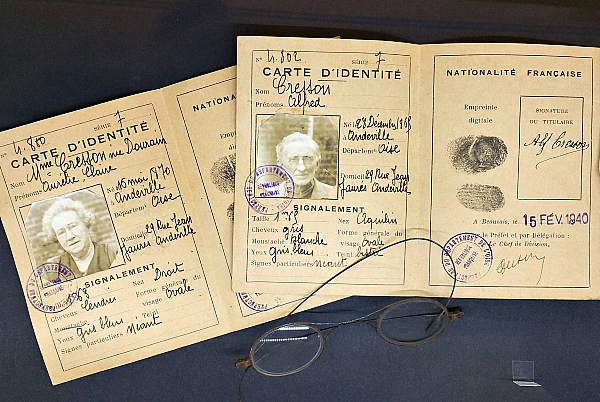 N° 4.800 SÉRIE 7
CARTE D'IDENTITÉ
Nom Mme Cresson née
Prénoms Aurélie Claire
Né le 10 mai 1870
à Andeville
Départemt Oise
Domicile 29 Rue Jean
Jaurès Andeville
SIGNALEMENT
Nez Droit
Cheveux Cendrés Forme générale du
Moustache visage Ovale
Yeux gris bleus Teint
Signes particuliers Néant
NATIONA
Empreinte
digitale
N° 4.802 SÉRIE 7
CARTE D'IDENTITÉ
Nom Cresson
Prénoms Alfred
Né le 28 Décembre 1868
à Andeville
Départemt Oise
Domicile 29 Rue Jean
Jaurès Andeville
SIGNALEMENT
Taille 1m68 Nez Aquilin
Cheveux gris Forme générale du
Moustache blanche visage Ovale
Yeux gris bleus Teint
Signes particuliers Néant
NATIONALITÉ FRANÇAISE
Empreinte
digitale
SIGNATURE
DU TITULAIRE
Alf Cresson
A Beauvais, le 15 FÉV. 1940
le Préfet et par Délégation :
Le Chef de Division,